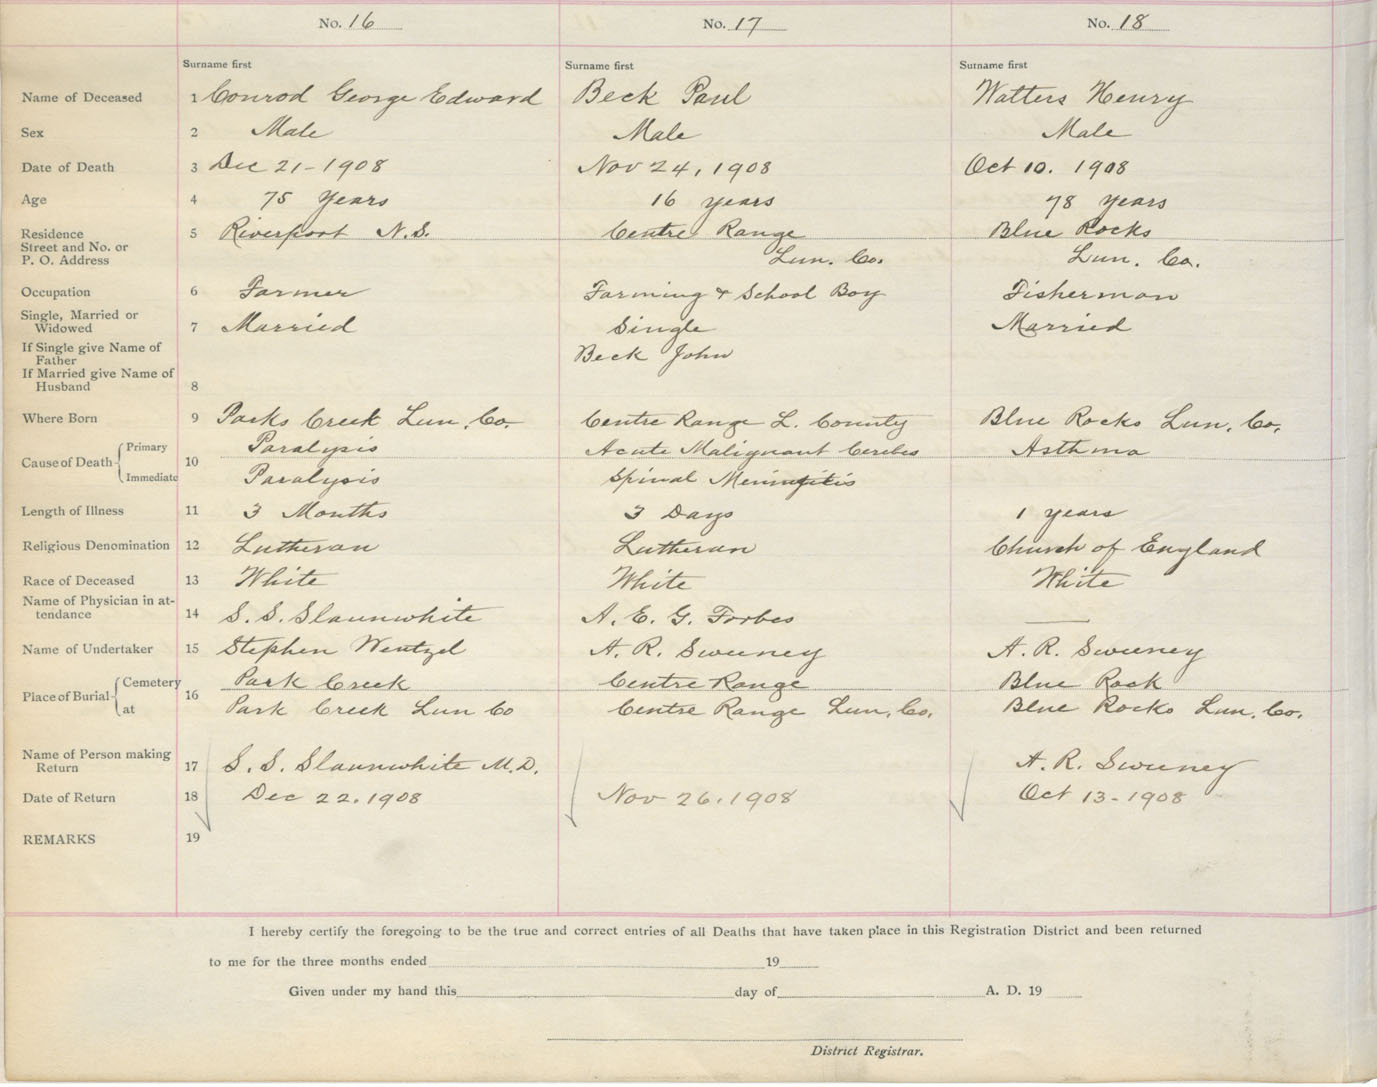 No. 16 No. 17 No. 18
Surname first Surname first Surname first
Name of Deceased 1 Conrod George Edward Beck Paul Watters Henry
Sex 2 Male Male Male
Date of Death 3 Dec 21-1908 Nov 24, 1908 Oct 10. 1908
Age 4 75 Years 16 years 78 years
Residence 5 Riverport N.S. Centre Range Blue Rocks
Street and No. or
P. O. Address Lun. Co. Lun. Co.
Occupation 6 Farmer Farming & School Boy Fisherman
Single, Married or
Widowed 7 Married Single Married
If Single give Name of
Father Beck John
If Married give Name of
Husband 8
Where Born 9 Parks Creek Lun. Co. Centre Range L. County Blue Rocks Lun. Co.
Primary Paralysis Acute Malignant Cerebro Asthma
Cause of Death 10
Immediate Paralysis Spinal Meningitis
Length of Illness 11 3 Months 3 Days 1 years
Religious Denomination 12 Lutheran Lutheran Church of England
Race of Deceased 13 White White White
Name of Physician in at-
tendance 14 S. S. Slaunwhite A. E. G. Forbes
Name of Undertaker 15 Stephen Wentzel A. R. Sweeney A. R. Sweeney
Cemetery Park Creek Centre Range Blue Rock
Place of Burial 16
at Park Creek Lun Co Centre Range Lun. Co. Blue Rocks Lun. Co.
Name of Person making
Return 17 S. S. Slaunwhite M.D. A. R. Sweeney
Date of Return 18 Dec 22. 1908 Nov 26. 1908 Oct 13-1908
REMARKS 19
I hereby certify the foregoing to be the true and correct entries of all Deaths that have taken place in this Registration District and been returned
to me for the three months ended 19
Given under my hand this day of A. D. 19
District Registrar.